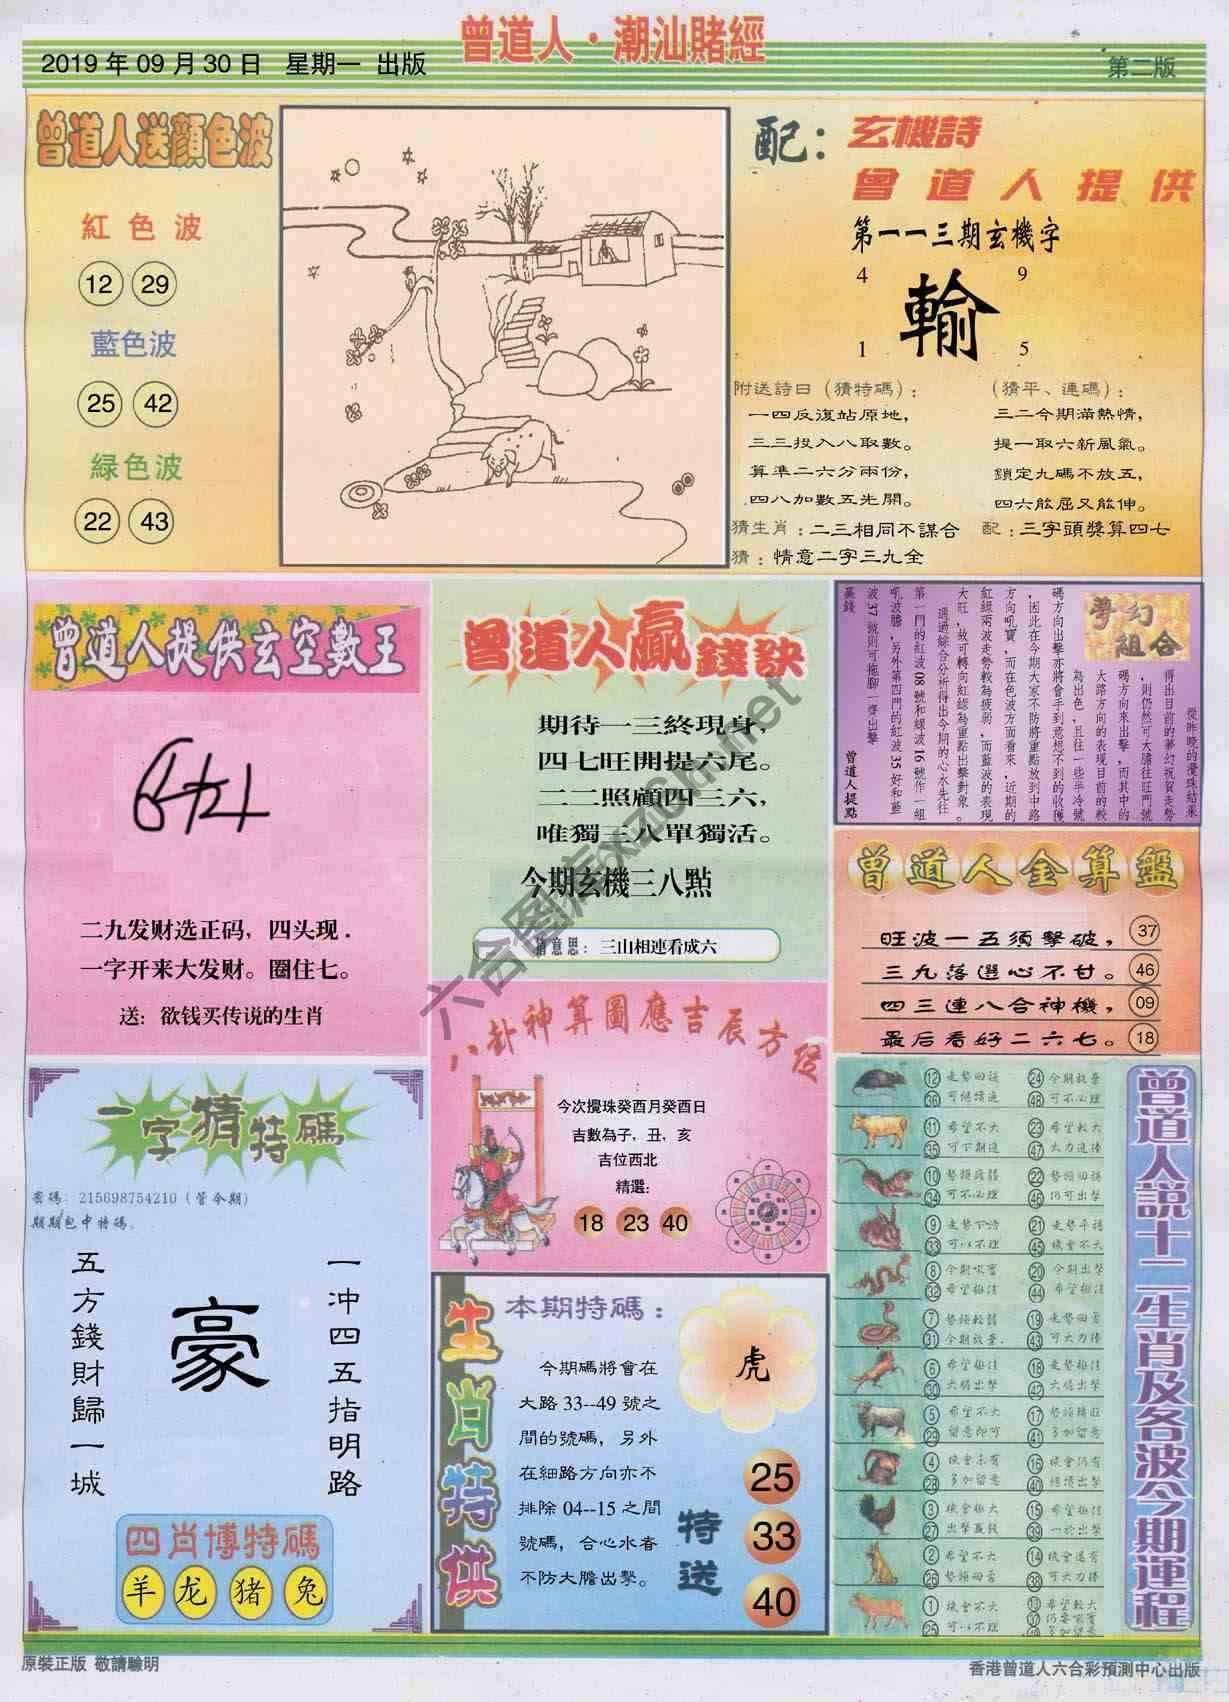 曾道人·潮汕賭經
2019年09月30日 星期一 出版
第二版
曾道人送顏色波
紅色波
12 29
藍色波
25 42
緑色波
22 43
配：
玄機詩
曾道人提供
第一一三期玄機字
4 9
輸
1 5
附送詩曰（猜特碼）：
一四反復站原地，
三三投入八取數。
算準二六分兩份，
四八加數五先開。
（猜平、連碼）：
三二今期滿熱情，
提一取六新風氣。
鎖定九碼不放五，
四六能屈又能伸。
猜生肖：二三相同不謀合
配：三字頭獎算四七
猜：情意二字三九全
曾道人提供玄空數王
二九发财选正码，四头现.
一字开来大发财。圈住七。
送：欲钱买传说的生肖
曾道人贏錢訣
期待一三終現身，
四七旺開提六尾。
二二照顧四三六，
唯獨三八單獨活。
今期玄機三八點
猜意思：三山相連看成六
夢幻組合
從昨晚的攪珠結果
得出目前的夢幻祝賀走勢
，則仍然可大膽往旺門號
碼方向來出擊，而其中的
大路方向的表現目前的較
為出色，且往一些半冷號
碼方向出擊亦將會手到意想不到的收穫
，因此在今期大家不防將重點放到中路
方向吼寶，而在色波方面看來，近期的
紅綠兩波走勢較為疲弱，而藍波的表現
大旺，故可轉向紅綠為重點出擊對象。
通過綜合分析得出今期的心水先往
第一門的紅波08號和綠波16號作一組
吼波膽，另外第四門的紅波35好和藍
波37號則可拖腳一齊出擊
贏錢
曾道人提點
曾道人金算盤
旺波一五須擊破， 37
三九落選心不甘。 46
四三連八合神機， 09
最后看好二六七。 18
八卦神算圖應吉辰方位
今次攪珠癸酉月癸酉日
吉數為子，丑，亥
吉位西北
精選：
18 23 40
一字猜特碼
密碼：215698754210（管今期）
期期包中特碼。
一冲四五指明路
豪
五方錢財歸一城
四肖博特碼
羊 龙 猪 兔
生肖特供
本期特碼：
虎
今期碼將會在
大路33--49號之
間的號碼，另外
在細路方向亦不
排除04--15之間
號碼，合心水者
不防大膽出擊。
特送
25
33
40
曾道人說十二生肖及各波今期運程
12 走勢回穩
36 可繼續追
24 今期放棄
48 可不必理
11 希望不大
35 可下期追
23 希望較大
47 大力追捧
10
34 可不必理
22 勢頭回穩
46 仍可出擊
9
33 可以不理
21 走勢平穩
45 機會不大
8 今期吼實
32 希望極佳
20 今期出擊
44 希望極佳
7 勢頭較弱
31 今期放棄
19
43 可大力捧
6 希望極佳
30 大膽出擊
18 走勢極佳
42 大膽出擊
5 希望不大
29 留意即可
17
41 多加留意
4 機會未有
28 多加留意
16 機會仍有
40 繼續出擊
3 機會極大
27
15 希望極佳
39 一於出擊
2 希望不大
26
14 機會還有
38 可大力捧
1 機會不大
25 可以不理
13 希望較大
37
49 多加留意
六合图库txz6h.net
原裝正版 敬請驗明
香港曾道人六合彩預測中心出版